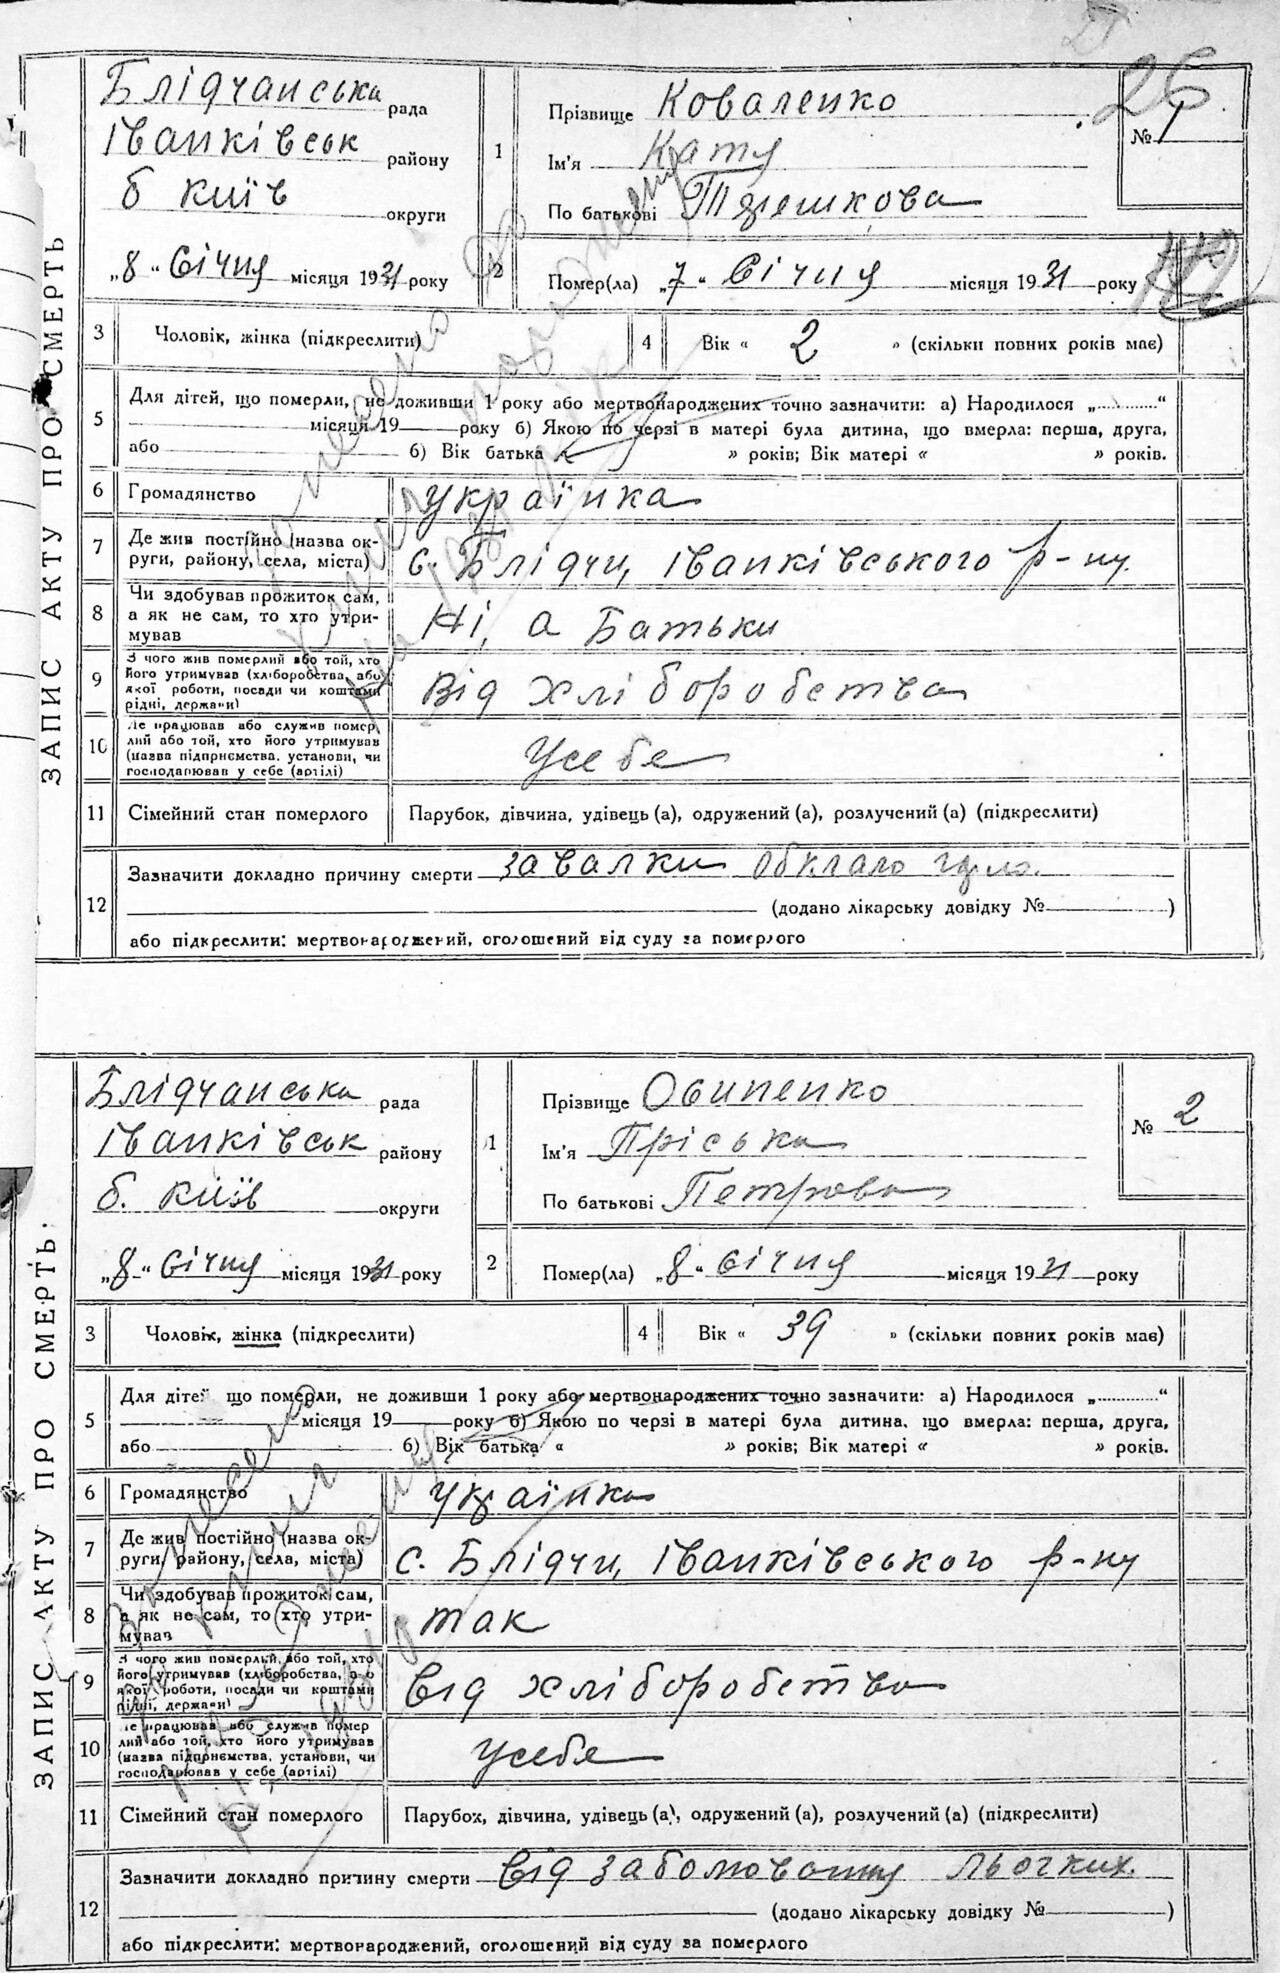 26
ЗАПИС АКТУ ПРО СМЕРТЬ
Блідчанська рада
Іванківськ району
б Київ округи
„8“ Січня місяця 1931 року
1 Прізвище Коваленко
Ім'я Катя
По батькові
№ 1
2 Помер(ла) „7“ Січня місяця 1931 року
3 Чоловік, жінка (підкреслити)
4 Вік « 2 » (скільки повних років має)
5 Для дітей, що померли, не доживши 1 року або мертвонароджених точно зазначити: а) Народилося „............“
місяця 19 року б) Якою по черзі в матері була дитина, що вмерла: перша, друга,
або б) Вік батька » років; Вік матері « » років.
6 Громадянство українка
7 Де жив постійно (назва ок-
руги, району, села, міста) с. Блідчи, Іванківського р-ну.
8 Чи здобував прожиток сам,
а як не сам, то хто утри-
мував Ні, а Батьки
9 З чого жив померлий або той, хто
його утримував (хліборобства, або
якої роботи, посади чи коштами
рідні, держави) Від хліборобства
10 Де працював або служив помер
лий або той, хто його утримував
(назва підприємства. установи, чи
господарював у себе (артілі) Усебе
11 Сімейний стан померлого Парубок, дівчина, удівець (а), одружений (а), розлучений (а) (підкреслити)
12 Зазначити докладно причину смерти завалки обклало горло.
(додано лікарську довідку № )
або підкреслити: мертвонароджений, оголошений від суду за померлого
ЗАПИС АКТУ ПРО СМЕРТЬ.
Блідчанська рада
Іванківськ району
б. Київ округи
„8“ Січня місяця 1931 року
1 Прізвище Осипенко
Ім'я Пріська
По батькові Петрова
№ 2
2 Помер(ла) „8“ Січня місяця 1931 року
3 Чоловік, жінка (підкреслити)
4 Вік « 39 » (скільки повних років має)
5 Для дітей що померли, не доживши 1 року або мертвонароджених точно зазначити: а) Народилося „............“
місяця 19 року б) Якою по черзі в матері була дитина. що вмерла: перша, друга,
або б) Вік батька « » років; Вік матері « » років.
6 Громадянство українка
7 Де жив постійно (назва ок-
руги району, села, міста) с. Блідчи, Іванківського р-ну
8 Чи здобував прожиток сам,
а як не сам, то хто утри-
мував так
9 З чого жив померлый, або той, хто
його утримував (хліборобства, або
якої роботи, посади чи коштами
рідні, держави) Від хліборобства
10 Де працював або служив помер
лий або той, хто його утримував
(назва підприємства. установи, чи
господарював у себе (артілі) Усебе
11 Сімейний стан померлого Парубох, дівчина, удівець (а), одружений (а), розлучений (а) (підкреслити)
12 Зазначити докладно причину смерти Від заболювання льогких.
(додано лікарську довідку № )
або підкреслити: мертвонароджений, оголошений від суду за померлого